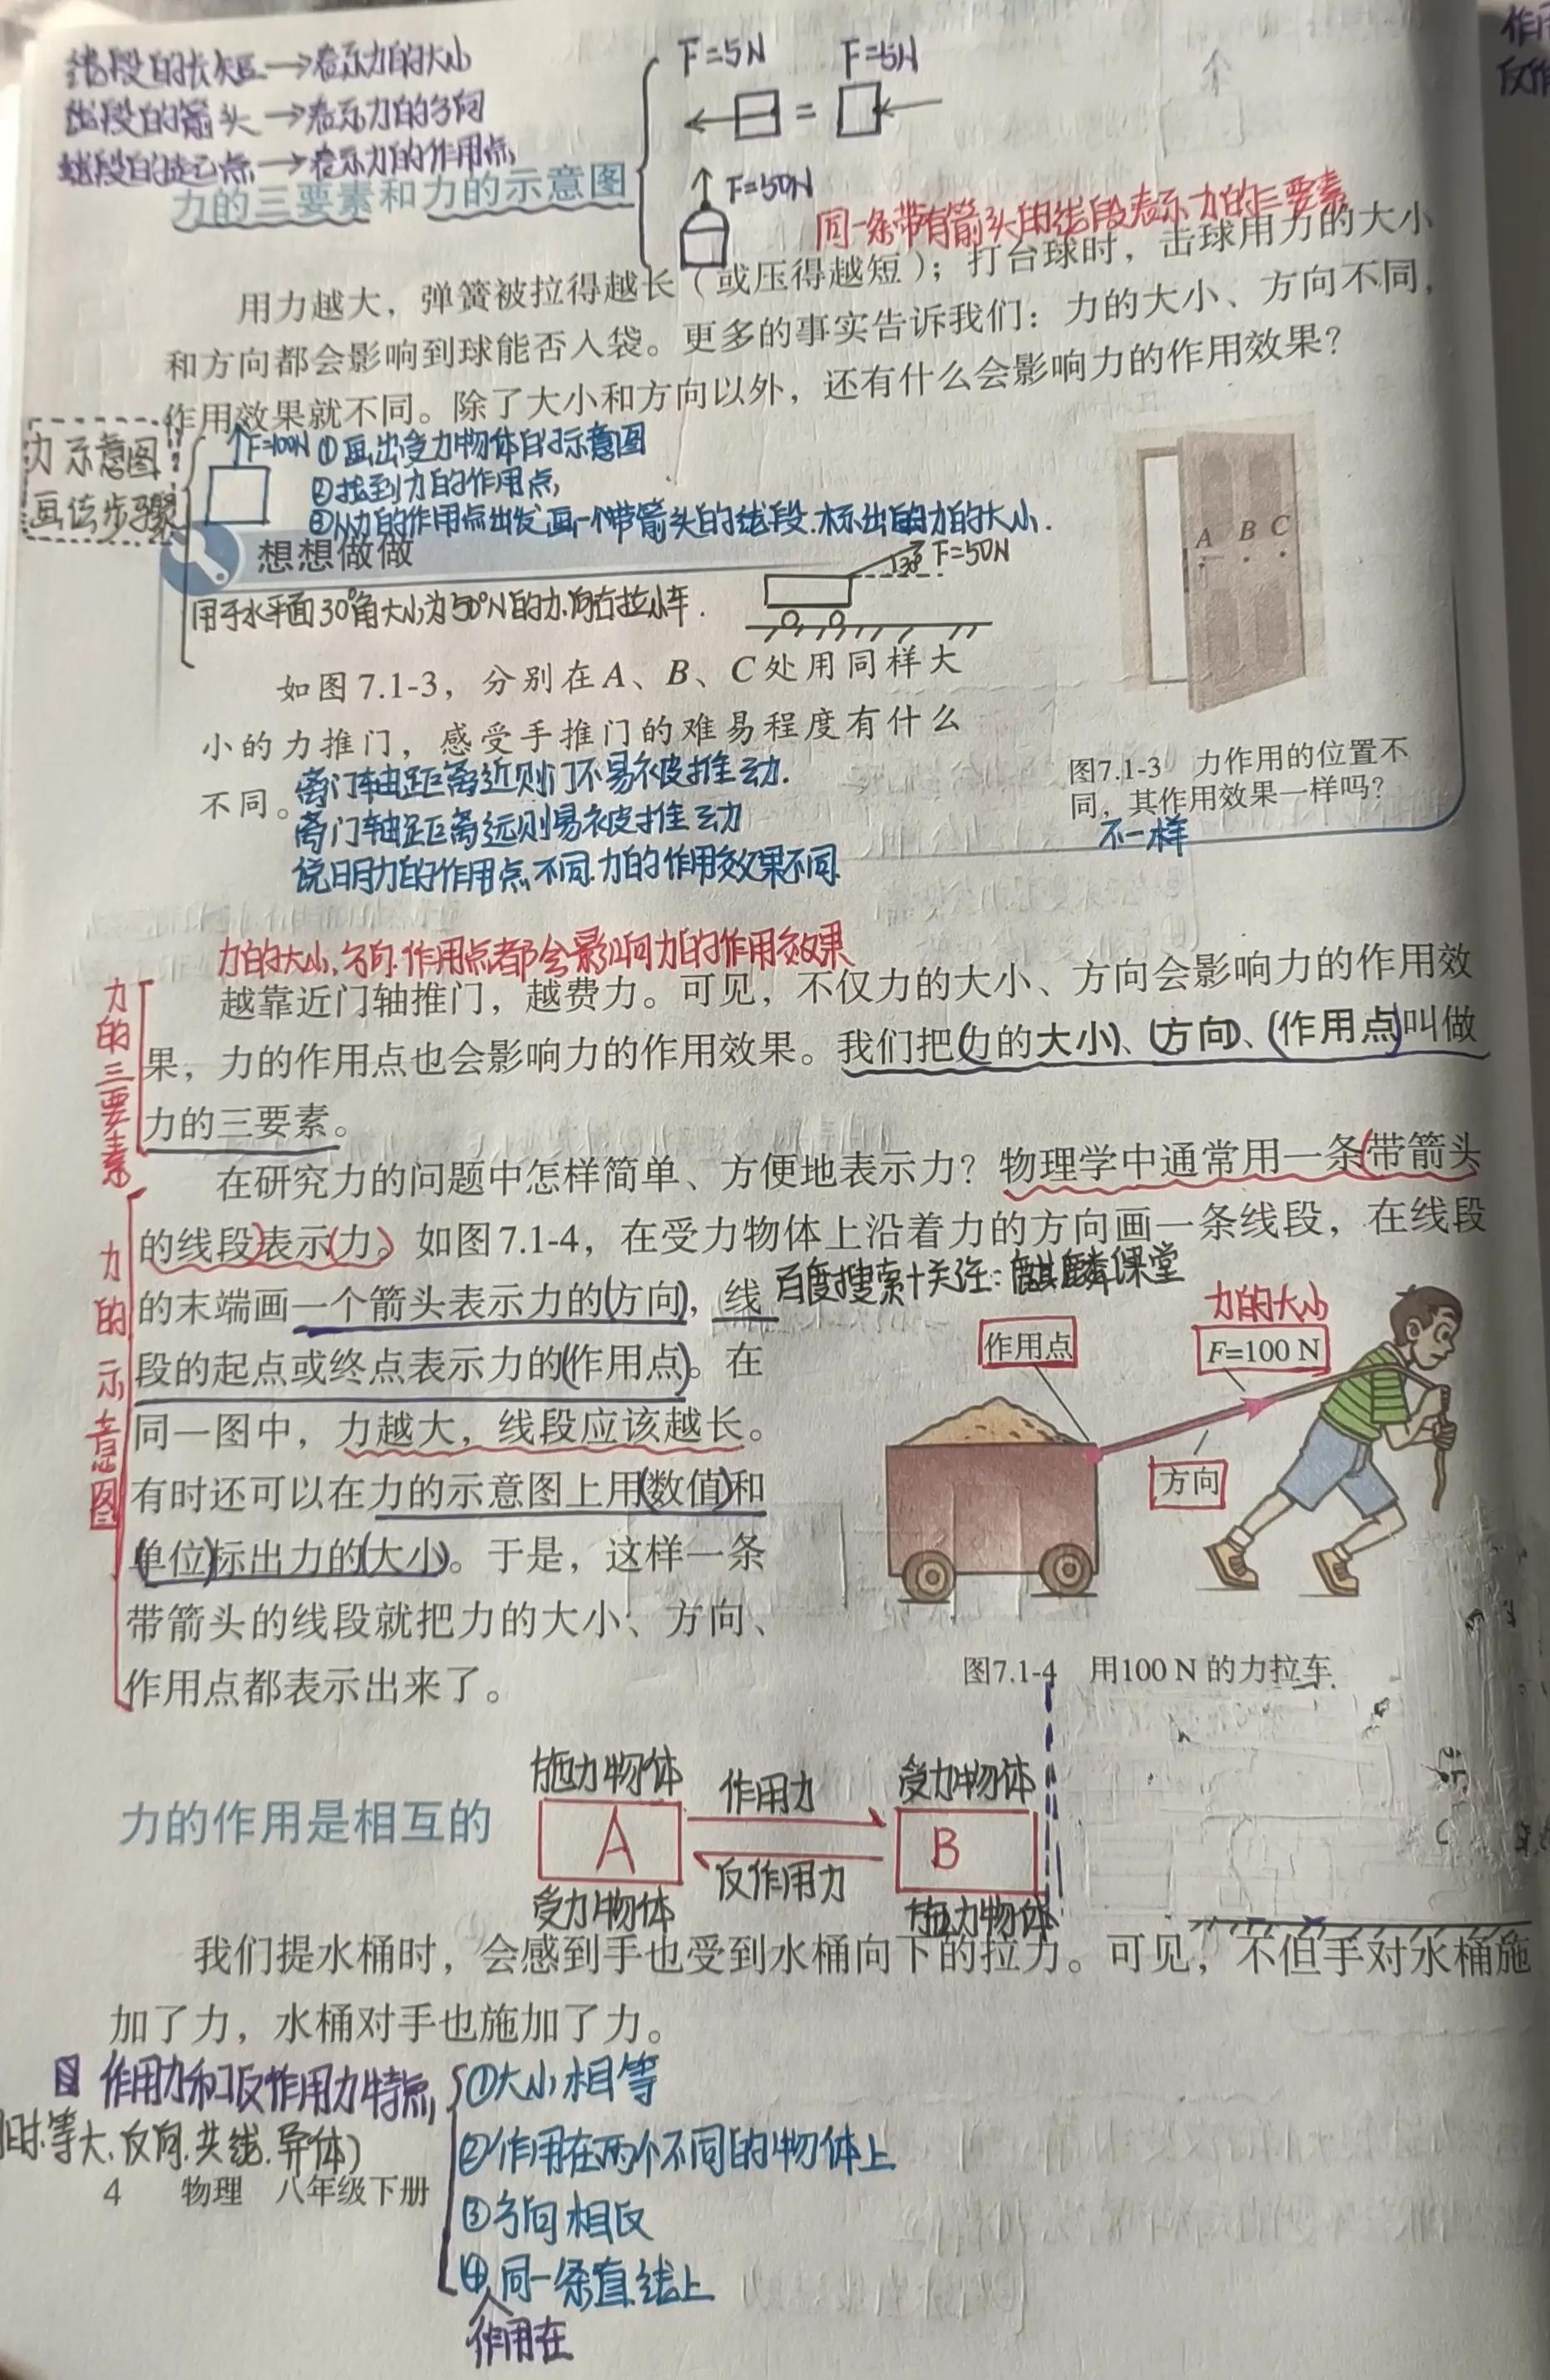 线段的长短→表示力的大小
线段的箭头→表示力的方向
线段的起点→表示力的作用点
F=5N = F=5N
F=50N
力的三要素和力的示意图
同一条带有箭头的线段表示力的三要素
用力越大，弹簧被拉得越长（或压得越短）；打台球时，击球用力的大小
和方向都会影响到球能否入袋。更多的事实告诉我们：力的大小、方向不同，
作用效果就不同。除了大小和方向以外，还有什么会影响力的作用效果？
力示意图
画法步骤
F=100N
①画出受力物体的示意图
②找到力的作用点,
③从力的作用点出发画一个带箭头的线段.标出力的大小.
想想做做
用于水平面30°角大小为50°N的力.向右拉小车.
30° F=50N
A B C
如图7.1-3，分别在A、B、C处用同样大
小的力推门，感受手推门的难易程度有什么
不同。
离门轴距离近则门不易被推动.
离门轴距离远则易被推动
说明力的作用点不同.力的作用效果不同
图7.1-3 力作用的位置不
同，其作用效果一样吗？
不一样
力的大小、方向.作用点都会影响力的作用效果
力的三要素
越靠近门轴推门，越费力。可见，不仅力的大小、方向会影响力的作用效
果，力的作用点也会影响力的作用效果。我们把(力的大小)、(方向)、(作用点)叫做
力的三要素。
力的示意图
在研究力的问题中怎样简单、方便地表示力？物理学中通常用一条(带箭头
的线段)表示(力)。如图7.1-4，在受力物体上沿着力的方向画一条线段，在线段
的末端画一个箭头表示力的(方向)，线
段的起点或终点表示力的(作用点)。在
同一图中，力越大，线段应该越长。
有时还可以在力的示意图上用(数值)和
(单位)标出力的(大小)。于是，这样一条
带箭头的线段就把力的大小、方向、
作用点都表示出来了。
百度搜索+关注:麒麟课堂
力的大小
作用点
F=100 N
方向
图7.1-4 用100 N 的力拉车
力的作用是相互的
施力物体 作用力 受力物体
A B
受力物体 反作用力 施力物体
我们提水桶时，会感到手也受到水桶向下的拉力。可见，不但手对水桶施
加了力，水桶对手也施加了力。
作用力和反作用力特点
等大、反向.共线.异体)
①大小相等
②作用在两个不同的物体上
③方向相反
④同一条直线上
作用在
4 物理 八年级下册